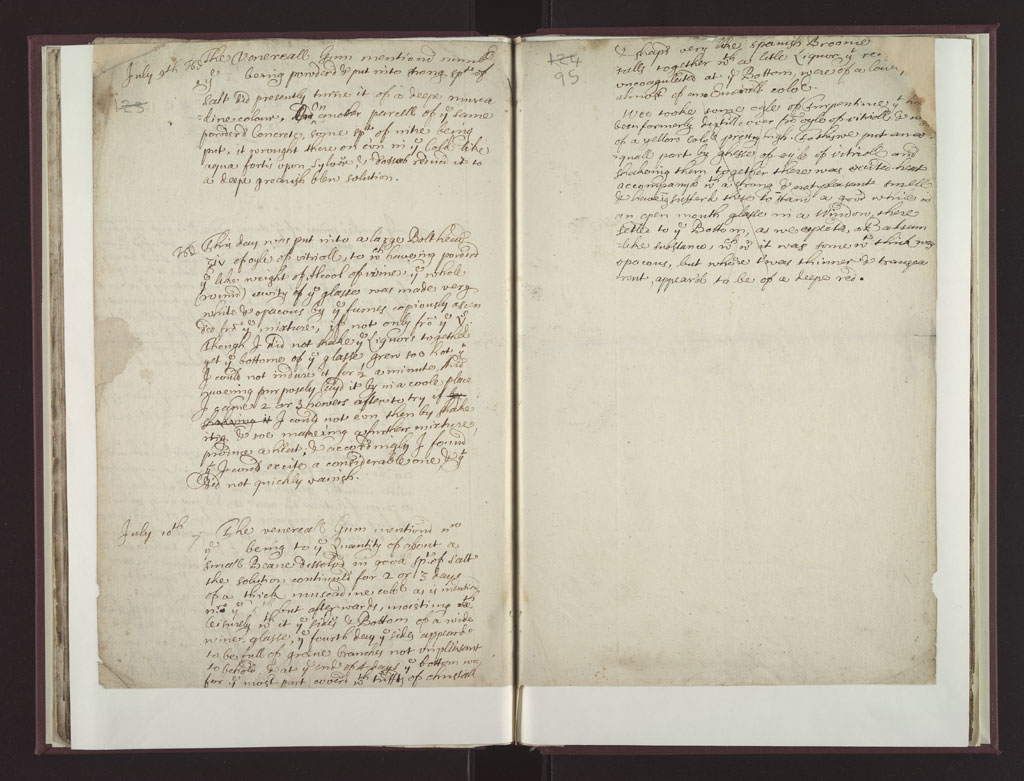 July 9th 765 The Venereall Gum mentiond numb
125
ye being powderd & put into strong spt of
salt did presently turne it of a deepe musca
=dine colour, on another parcell of ye same
powderd Concrete, some spt of nitre being
put, it wrought there on evn in ye Cold like
aqua fortis upon sylver & reduce it to
a deepe greenish blew solution.
766 This day was put into a large Bolthead
of oyle of vitrioll, to wch haveing powrd
ye like weight of Alcool of wine, ye whole
(round) cavity of ye glasse was made very
white & opacous by ye fumes copiously ascen
ded fro ye mixture, not only fro ye
Though I did not shake ye Liquors together
yet ye bottome of ye glasse grew soe hot yt
I could not indure it for ½ a minute,
haveing purposely layd it by in a coole place
I came 2 or 3 howers after to try if
shakeing it I could not evn then by shake
ing & soe makeing a further mixture,
produce a heat, & accordingly I found
yt I could excite a considerable one & yt
did not quickly vanish.
July 10th 7 The venereall Gum mentiond no
ye being to ye Quantity of about a
small Beane dissolvd in good spt of salt
the solution continued for 2 or 3 days
of a thick muscadine colo as is mention
ye but afterwards, moisting
leisurely wth it ye sides & Bottom of a wide
wine glasse, ye fourth day ye sides appeard
to be full of greene branches not unpleasant
to behold & at ye end of days ye bottom was
for ye most part coverd wth tuffts of christall
124
95
& shap'd very like Spanish Broome
Falls together wth a litle Liquor yt re
uncoagulated at ye Bottom, were of a lovely
almost of an Emerald colo.
Wee tooke some oyle of turpentine yt had
been formerly distill'd over fro oyle of vitrioll & was
of a yellow colo & pretty high. To this we put an e
=quall part by ghesse of oyle of vitriol and
shakeing them together there was excited heat
accompanied wth a strong & not pleasant smell
& haveing sufferd these to stand a good while in
an open mouth glasse in a Window, there
setled to ye Bottom, as we expected, a Balsam
=like substance, wch wn it was some wt thick was
opacous, but where twas thinner & transpa
rent, appeard to be of a deepe red.